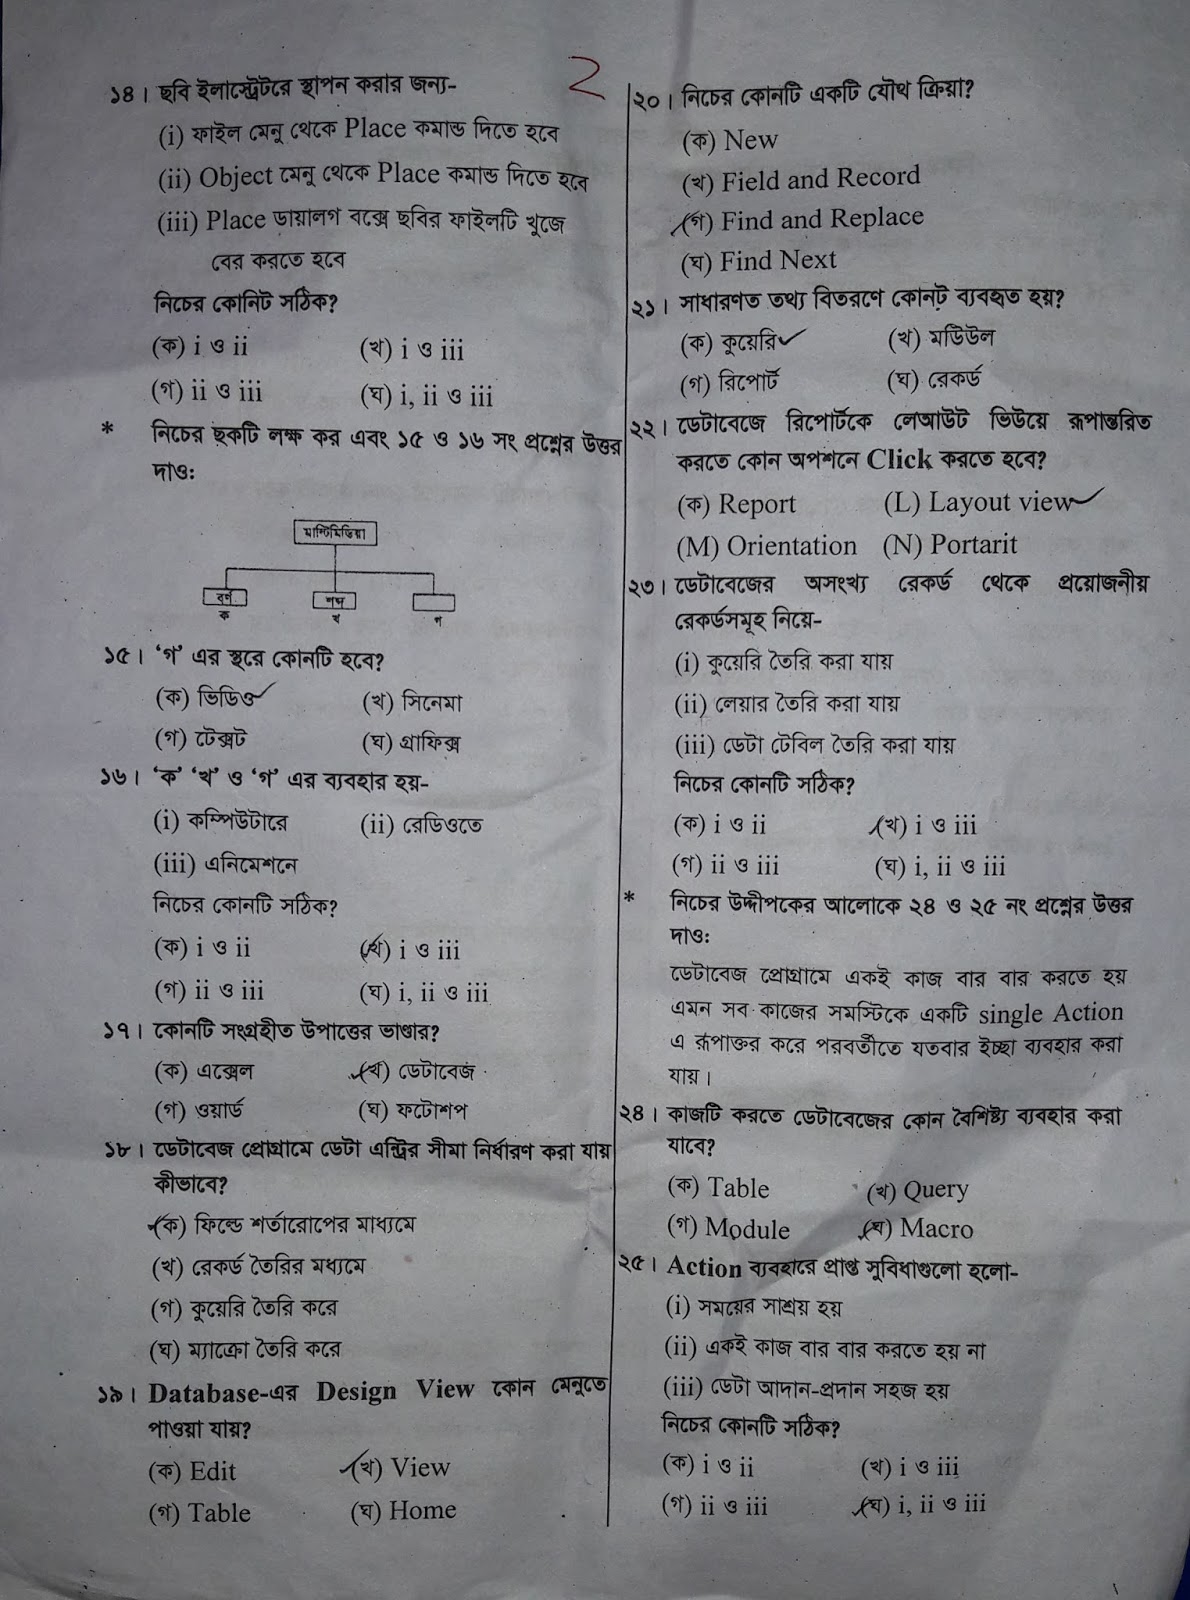 2
১৪। ছবি ইলাস্ট্রেটরে স্থাপন করার জন্য-
(i) ফাইল মেনু থেকে Place কমান্ড দিতে হবে
(ii) Object মেনু থেকে Place কমান্ড দিতে হবে
(iii) Place ডায়ালগ বক্সে ছবির ফাইলটি খুজে
বের করতে হবে
নিচের কোনিট সঠিক?
(ক) i ও ii (খ) i ও iii
(গ) ii ও iii (ঘ) i, ii ও iii
* নিচের ছকটি লক্ষ কর এবং ১৫ ও ১৬ সং প্রশ্নের উত্তর
দাও:
মাল্টিমিডিয়া
বর্ণ শব্দ
ক খ গ
১৫। ‘গ’ এর স্থরে কোনটি হবে?
(ক) ভিডিও (খ) সিনেমা
(গ) টেক্সট (ঘ) গ্রাফিক্স
১৬। ‘ক’ ‘খ’ ও ‘গ’ এর ব্যবহার হয়-
(i) কম্পিউটারে (ii) রেডিওতে
(iii) এনিমেশনে
নিচের কোনটি সঠিক?
(ক) i ও ii (খ) i ও iii
(গ) ii ও iii (ঘ) i, ii ও iii
১৭। কোনটি সংগ্রহীত উপাত্তের ভাণ্ডার?
(ক) এক্সেল (খ) ডেটাবেজ
(গ) ওয়ার্ড (ঘ) ফটোশপ
১৮। ডেটাবেজ প্রোগ্রামে ডেটা এন্ট্রির সীমা নির্ধারণ করা যায়
কীভাবে?
(ক) ফিল্ডে শর্তারোপের মাধ্যমে
(খ) রেকর্ড তৈরির মধ্যমে
(গ) কুয়েরি তৈরি করে
(ঘ) ম্যাক্রো তৈরি করে
১৯। Database-এর Design View কোন মেনুতে
পাওয়া যায়?
(ক) Edit (খ) View
(গ) Table (ঘ) Home
২০। নিচের কোনটি একটি যৌথ ক্রিয়া?
(ক) New
(খ) Field and Record
(গ) Find and Replace
(ঘ) Find Next
২১। সাধারণত তথ্য বিতরণে কোনট ব্যবহৃত হয়?
(ক) কুয়েরি (খ) মডিউল
(গ) রিপোর্ট (ঘ) রেকর্ড
২২। ডেটাবেজে রিপোর্টকে লেআউট ভিউয়ে রূপান্তরিত
করতে কোন অপশনে Click করতে হবে?
(ক) Report (L) Layout view
(M) Orientation (N) Portarit
২৩। ডেটাবেজের অসংখ্য রেকর্ড থেকে প্রয়োজনীয়
রেকর্ডসমূহ নিয়ে-
(i) কুয়েরি তৈরি করা যায়
(ii) লেয়ার তৈরি করা যায়
(iii) ডেটা টেবিল তৈরি করা যায়
নিচের কোনটি সঠিক?
(ক) i ও ii (খ) i ও iii
(গ) ii ও iii (ঘ) i, ii ও iii
* নিচের উদ্দীপকের আলোকে ২৪ ও ২৫ নং প্রশ্নের উত্তর
দাও:
ডেটাবেজ প্রোগ্রামে একই কাজ বার বার করতে হয়
এমন সব কাজের সমস্টিকে একটি single Action
এ রূপান্তর করে পরবর্তীতে যতবার ইচ্ছা ব্যবহার করা
যায়।
২৪। কাজটি করতে ডেটাবেজের কোন বৈশিষ্ট্য ব্যবহার করা
যাবে?
(ক) Table (খ) Query
(গ) Module (ঘ) Macro
২৫। Action ব্যবহারে প্রাপ্ত সুবিধাগুলো হলো-
(i) সময়ের সাশ্রয় হয়
(ii) একই কাজ বার বার করতে হয় না
(iii) ডেটা আদান-প্রদান সহজ হয়
নিচের কোনটি সঠিক?
(ক) i ও ii (খ) i ও iii
(গ) ii ও iii (ঘ) i, ii ও iii